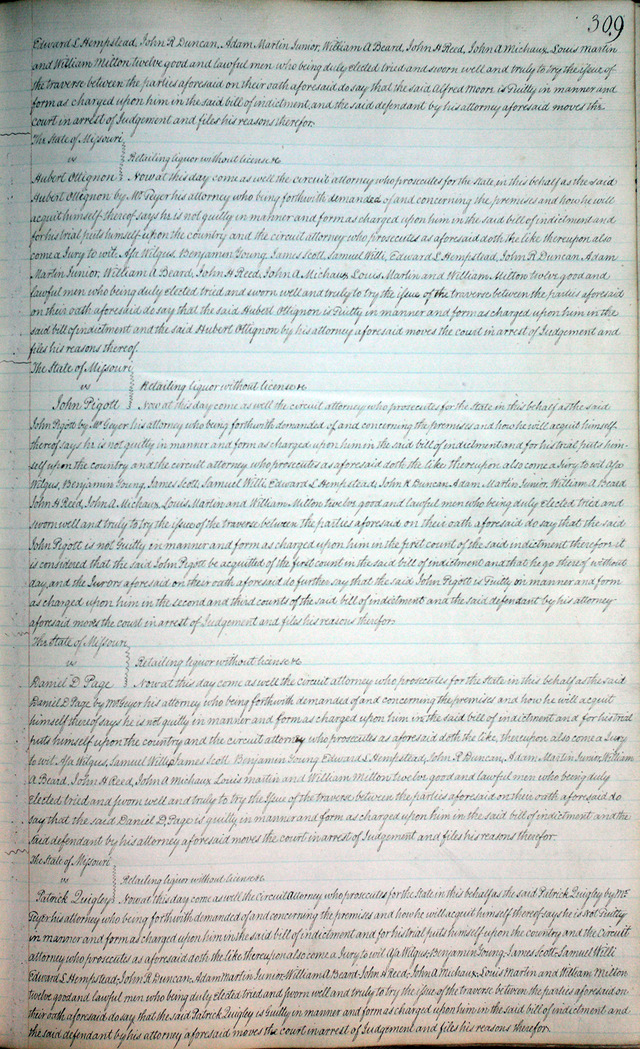 309
Edward L Hempstead, John R Duncan, Adam Martin Junior, William A Beard, John H Reed, John A Michaux, Louis Martin
and William Milton twelve good and lawful men who being duly elected tried and sworn well and truly to try the issue of
the traverse between the parties aforesaid on their oath aforesaid do say that the said Alfred Moore is Guilty in manner and
form as charged upon him in the said bill of indictment, and the said defendant by his attorney aforesaid moves the
court in arrest of Judgement and files his reasons therefor.
The State of Missouri
vs
Retailing liquor without license
Hubert Ottignon Now at this day come as well the circuit attorney who prosecutes for the state in this behalf as the said
Hubert Ottignon by Mr Geyer his attorney who being forthwith demanded of and concerning the premises and how he will
acquit himself thereof says he is not guilty in manner and form as charged upon him in the said bill of indictment and
for his trial puts himself upon the country and the circuit attorney who prosecutes as aforesaid doth the like thereupon also
come a Jury to wit. Asa Wilgus, Benjamin Young, James Scott Samuel Willi, Edward L Hempstead, John R Duncan, Adam
Martin Junior, William A Beard, John H Reed, John A Michaux, Louis, Martin and William Milton twelve good and
lawful men who being duly elected tried and sworn well and truly to try the issue of the traverse between the parties aforesaid
on their oath aforesaid do say that the said Hubert Ottignon is Guilty in manner and form as charged upon him in the
said bill of indictment and the said Hubert Ottignon by his attorney aforesaid moves the court in arrest of Judgement and
files his reasons thereof.
The State of Missouri
vs
Retailing liquor without license
John Pigott Now at this day come as well the circuit attorney who prosecutes for the state in this behalf as the said
John Pigott by Mr Geyer his attorney who being forthwith demanded of and concerning the premises and how he will acquit himself
thereof says he is not guilty in manner and form as charged upon him in the said bill of indictment and for his trial puts him-
self upon the country and the circuit attorney who prosecutes as aforesaid doth the like thereupon also come a Jury to wit Asa
Wilgus, Benjamin Young, James Scott, Samuel Willi Edward L Hempstead, John R Duncan, Adam Martin Junior, William A Beard
John H Reed, John A Michaux, Louis Martin and William Milton twelve good and lawful men who being duly elected tried and
sworn well and truly to try the issue of the traverse between the parties aforesaid on their oath aforesaid do say that the said
John Pigott is not Guilty in manner and form as charged upon him in the first count of the said indictment therefore it
is considered that the said John Pigott be acquitted of the first count in the said bill of indictment and that he go thereof without
day, and the Jurors aforesaid on their oath aforesaid do further say that the said John Pigott is Guilty in manner and form
as charged upon him in the second and third counts of the said bill of indictment and the said defendant by his attorney
aforesaid moves the court in arrest of Judgement and files his reasons therefor.
The State of Missouri
vs
Retailing liquor without license
Daniel D Page Now at this day come as well the circuit attorney who prosecutes for the State in this behalf as the said
Daniel D. Page by Mr Geyer his attorney who being forthwith demanded of and concerning the premises and how he will acquit
himself thereof says he is not guilty in manner and form as charged upon him in the said bill of indictment and for his trial
puts himself upon the country and the circuit attorney who prosecutes as aforesaid doth the like, thereupon also come a Jury
to wit. Asa Wilgus, Samuel Willi, James Scott Benjamin Young Edward L Hempstead, John R Duncan, Adam Martin Junior, William
A Beard, John H Reed, John A Michaux Louis Martin and William Milton twelve good and lawful men who being duly
elected tried and sworn well and truly to try the Issue of the traverse between the parties aforesaid on their oath aforesaid do
say that the said Daniel D. Page is guilty in manner and form as charged upon him in the said bill of indictment and the
said defendant by his attorney aforesaid moves the court in arrest of Judgement and files his reasons therefor.
The State of Missouri
vs
Retailing liquor without license
Patrick Quigley Now at this day come as well the Circuit Attorney who prosecutes for the State in this behalf as the said Patrick Quigley by Mr
Geyer his attorney who being forthwith demanded of and concerning the premises and how he will acquit himself thereof says he is not Guilty
in manner and form as charged upon him in the said bill of indictment and for his trial puts himself upon the country and the Circuit
attorney who prosecutes as aforesaid doth the like thereupon also come a Jury to wit Asa Wilgus, Benjamin Young, James Scott, Samuel Willi
Edward L Hempstead, John R Duncan, Adam Martin Junior William A Beard John H Reed, John A Michaux, Louis Martin and William Milton
twelve good and lawful men who being duly elected tried and sworn well and truly to try the issue of the traverse between the parties aforesaid on
their oath aforesaid do say that the said Patrick Quigley is Guilty in manner and form as charged upon him in the said bill of indictment and
the said defendant by his attorney aforesaid moves the court in arrest of Judgement and files his reasons therefor.